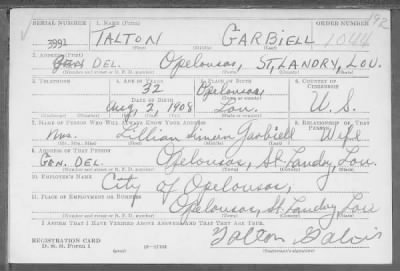 SERIAL NUMBER 1. NAME (Print) ORDER NUMBER
3991 TALTON GARBIELL 1044
(First) (Middle) (Last)
2. ADDRESS (Print)
GEN DEL. Opelousas, ST. LANDRY, LOU.
(Number and street or R. F. D. number) (Town) (County) (State)
3. TELEPHONE 4. AGE IN YEARS 5. PLACE OF BIRTH 6. COUNTRY OF CITIZENSHIP
32 Opelousas,
DATE OF BIRTH (Town or county)
Aug, 2, 1908 Lou. U. S.
(Exchange) (Number) (Mo.) (Day) (Yr.) (State or country)
7. NAME OF PERSON WHO WILL ALWAYS KNOW YOUR ADDRESS 8. RELATIONSHIP OF THAT PERSON
Mrs. Lillian Simien Garbiell Wife
(Mr., Mrs., Miss) (First) (Middle) (Last)
9. ADDRESS OF THAT PERSON
GEN. DEL. Opelousas, St. Landry, Lou.
(Number and street or R. F. D. number) (Town) (County) (State)
10. EMPLOYER'S NAME
City of Opelousas,
11. PLACE OF EMPLOYMENT OR BUSINESS
Opelousas, St. Landry Lou
(Number and street or R. F. D. number) (Town) (County) (State)
I AFFIRM THAT I HAVE VERIFIED ABOVE ANSWERS AND THAT THEY ARE TRUE.
REGISTRATION CARD
D. S. S. Form 1 (over) Talton